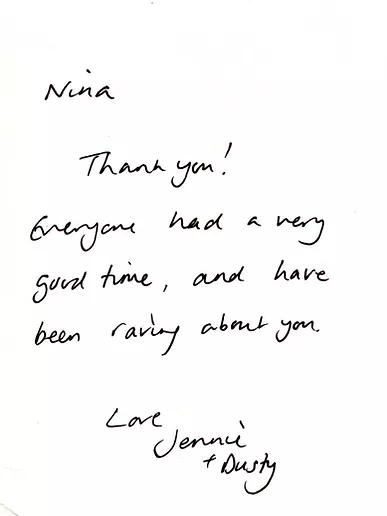 Nina
Thank you!
Everyone had a very
good time, and have
been raving about you.
Love
Jennie
+ Dusty